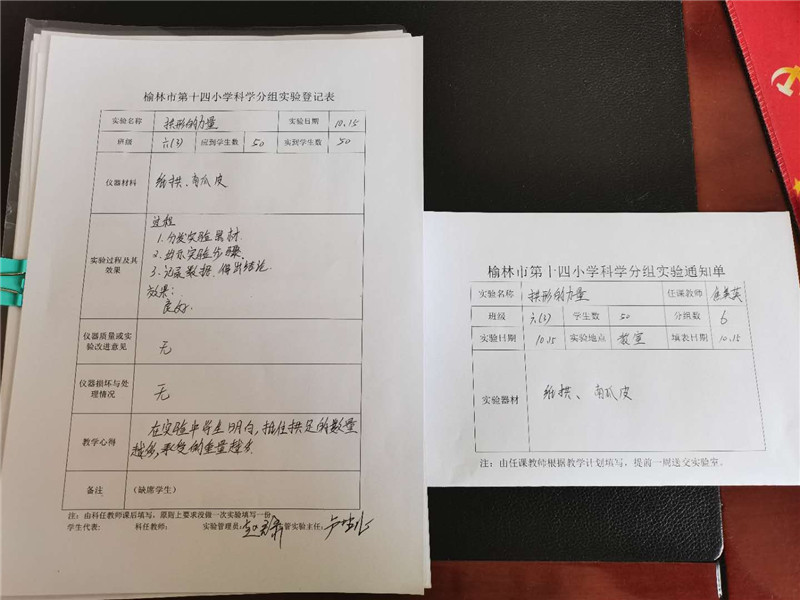 榆林市第十四小学科学分组实验登记表
实验名称 拱形的力量 实验日期 10.15
班级 六(3) 应到学生数 50 实到学生数 50
仪器材料 纸拱、南瓜皮
实验过程及其效果
过程
1.分发实验器材.
2.出示实验步骤.
3.记录数据、得出结论.
效果:
良好.
仪器质量或实验改进意见 无
仪器损坏与处理情况 无
教学心得 在实验中学生明白,抵住拱足的数量
越多,承受的重量越多.
备注 (缺席学生)
注:由科任教师课后填写,原则上要求没做一次实验填写一份
学生代表: 科任教师: 实验管理员: 管实验主任:
榆林市第十四小学科学分组实验通知单
实验名称 拱形的力量 任课教师
班级 六(3) 学生数 50 分组数 6
实验日期 10.15 实验地点 教室 填表日期 10.15
实验器材 纸拱、南瓜皮
注:由任课教师根据教学计划填写,提前一周送交实验室。